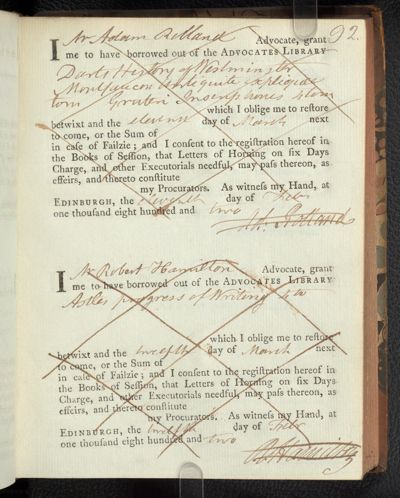 92.
I Mr Adam Rolland Advocate, grant
me to have borrowed out of the ADVOCATES LIBRARY
Darts History of Westminster
Montfaucon Antiquité expliquée
tom Gruteri Inscriptiones 4 tom
which I oblige me to restore
betwixt and the eleventh day of March next
to come, or the Sum of
in case of Failzie; and I consent to the registration hereof in
the Books of Session, that Letters of Horning on six Days
Charge, and other Executorials needful, may pass thereon, as
effeirs, and thereto constitute
my Procurators. As witness my Hand, at
EDINBURGH, the eleventh day of Febr
one thousand eight hundred and two
Ad. Rolland
I Mr Robert Hamilton Advocate, grant
me to have borrowed out of the ADVOCATES LIBRARY
Astles progress of Writing 4to
which I oblige me to restore
betwixt and the twelfth day of March next
to come, or the Sum of
in case of Failzie; and I consent to the registration hereof in
the Books of Session, that Letters of Horning on six Days
Charge, and other Executorials needful, may pass thereon, as
effeirs, and thereto constitute
my Procurators. As witness my Hand, at
EDINBURGH, the twelfth day of Febr
one thousand eight hundred and two
R Hamilton